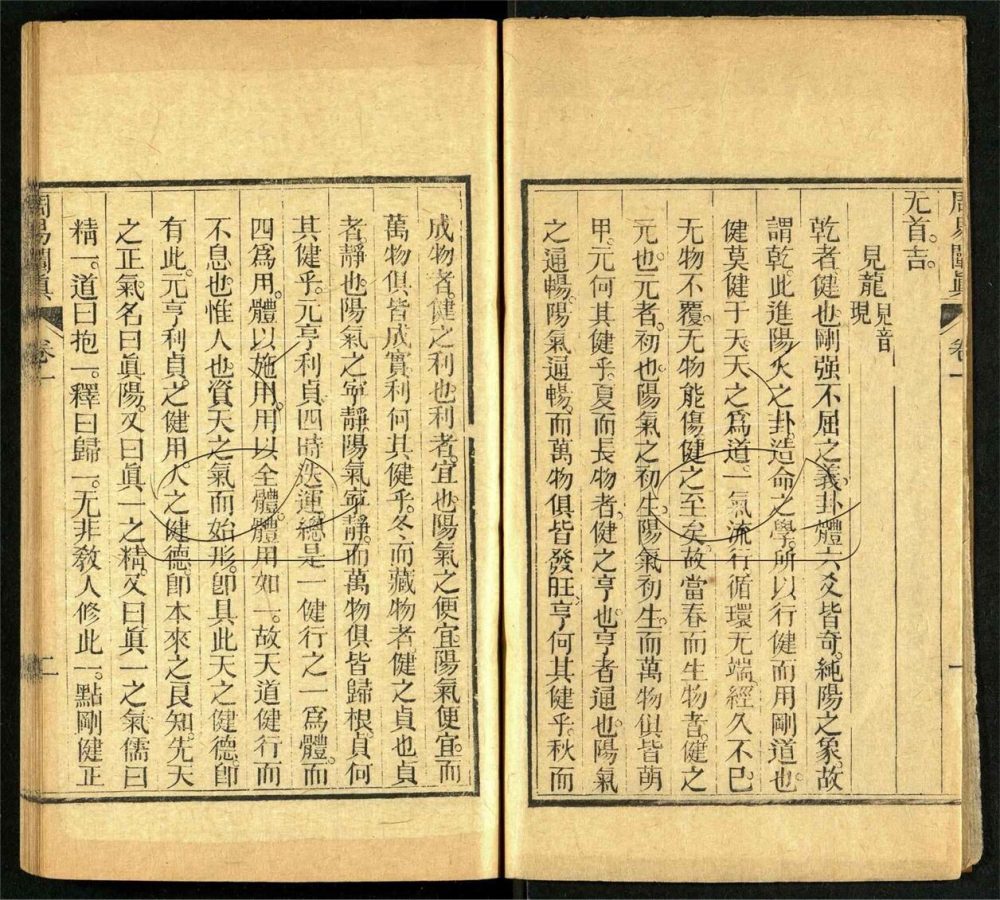 周易闡眞 卷一 一
无首。吉。
見龍 見音現
乾者。健也。剛强不屈之義。卦體六爻皆奇。純陽之象。故
謂乾。此進陽火之卦。造命之學。所以行健而用剛道也。
健莫健于天。天之爲道。一氣流行。循環无端。經久不已。
无物不覆。无物能傷。健之至矣。故當春而生物者。健之
元也。元者。初也。陽氣之初生。陽氣初生。而萬物俱皆萌
甲。元何其健乎。夏而長物者。健之亨也。亨者。通也。陽氣
之通暢。陽氣通暢。而萬物俱皆發旺。亨何其健乎。秋而
成物者。健之利也。利者。宜也。陽氣之便宜。陽氣便宜。而
萬物俱皆成實。利何其健乎。冬而藏物者。健之貞也。貞
者。靜也。陽氣之寧靜。陽氣寧靜。而萬物俱皆歸根。貞何
其健乎。元亨利貞。四時迭運。總是一健行之。一爲體。而
四爲用。體以施用。用以全體。體用如一。故天道健行而
不息也。惟人也。資天之氣而始形。卽具此天之健德。卽
有此元亨利貞之健用。人之健德。卽本來之良知。先天
之正氣。名曰眞陽。又曰眞一之精。又曰眞一之氣。儒曰
精一。道曰抱一。釋曰歸一。无非敎人修此一點剛健正
周易闡眞 卷一 二